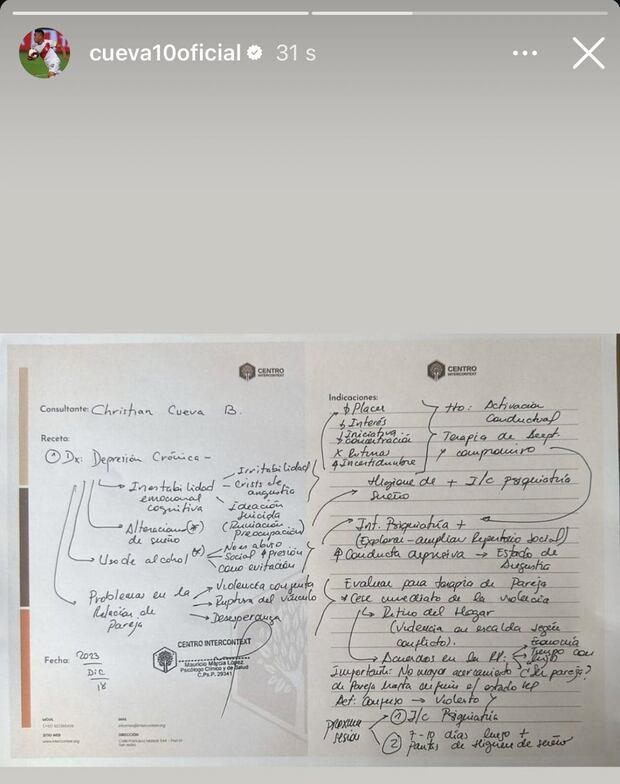 cueva10oficial 31 s
CENTRO
INTERCONTEXT
Consultante: Christian Cueva B.
Receta:
① Dx: Depresión Crónica -
Irritabilidad
Inestabilidad
emocional
cognitiva
Crisis de
angustia
Ideación
suicida
(Rumiación
preocupación)
Alteraciones (*)
de sueño
Uso de alcohol (*)
No es abuso
Social ↑ presión
como evitación
Problemas en la
Relación de
Pareja
Violencia conjunta
Ruptura del vínculo
Desesperanza
CENTRO INTERCONTEXT
Mauricio Murcia López
Psicólogo Clínico y de Salud
C.Ps.P. 29341
Fecha: 2023
Dic
18
MÓVIL
MAIL
SITIO WEB
www.intercontext.org
DIRECCIÓN
CENTRO
INTERCONTEXT
Indicaciones:
↓ Placer
↓ Interés
↓ Iniciativa
↓ concentración
X Rutina
↑ Incertidumbre
tto: Activación
Conductual
Terapia de Acept.
y compromiso
Higiene de + I/c psiquiatría
Sueño
Int. Psiquiatría +
(Explorar - ampliar Repertorio Social)
↑ Conducta depresiva → Estado de
Angustia
Evaluar para terapia de Pareja
* Cese inmediato de la violencia
↳ Retiro del Hogar
(Violencia en escalada según
conflicto).
Acuerdos en la
Economía
Tiempo con
hijos
Importante: No mayor acercamiento c/ su pareja?
de Pareja hasta definir el estado
Act: Confuso → Violento y
próxima
sesión
① I/c Psiquiatría
② 7-10 días luego +
pautas de Higiene de sueño